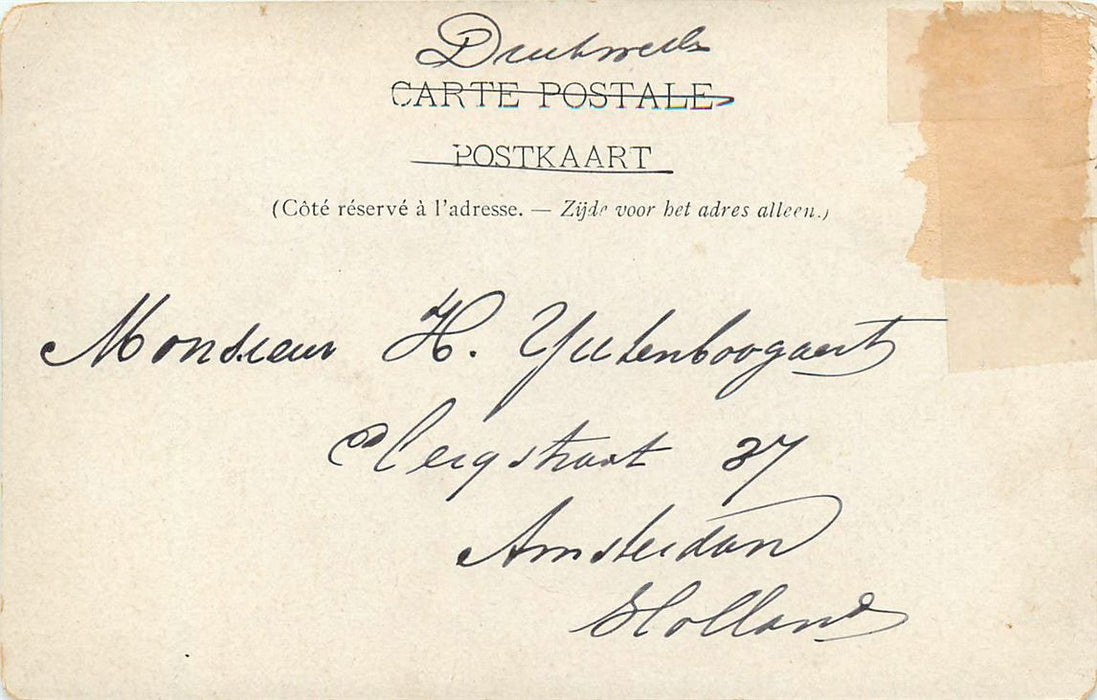 Drukwerk
CARTE POSTALE
POSTKAART
(Côté réservé à l'adresse. — Zijde voor het adres alleen.)
Monsieur H. Yutenboogaert
straat 37
Amsterdam
Holland